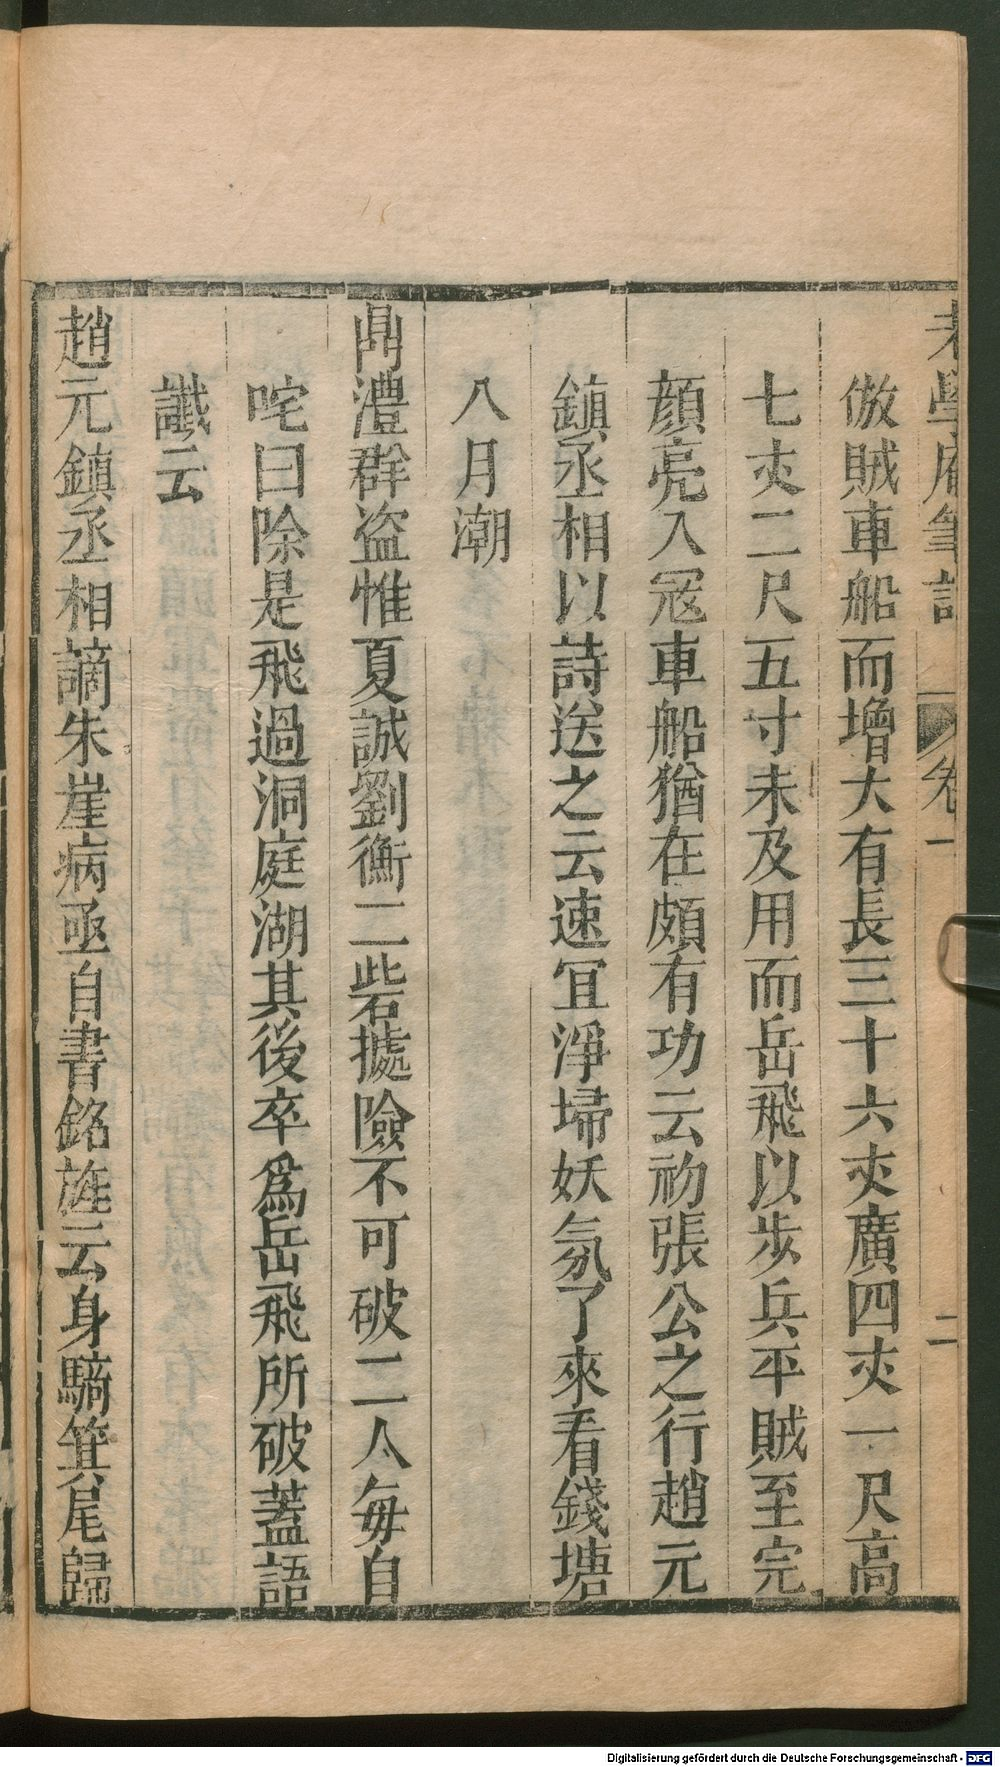 老學庵筆記 卷一 二
倣賊車船而增大有長三十六𠀋廣四𠀋一尺高
七𠀋二尺五寸未及用而岳飛以步兵平賊至完
顏亮入寇車船猶在頗有功云初張公之行趙元
鎮丞相以詩送之云速宜淨埽妖氛了來看錢塘
八月潮
鼎澧群盜惟夏誠劉衡二砦據險不可破二人每自
咤曰除是飛過洞庭湖其後卒爲岳飛所破蓋語
讖云
趙元鎮丞相謫朱崖病亟自書銘旌云身騎箕尾歸
Digitalisierung gefördert durch die Deutsche Forschungsgemeinschaft - DFG